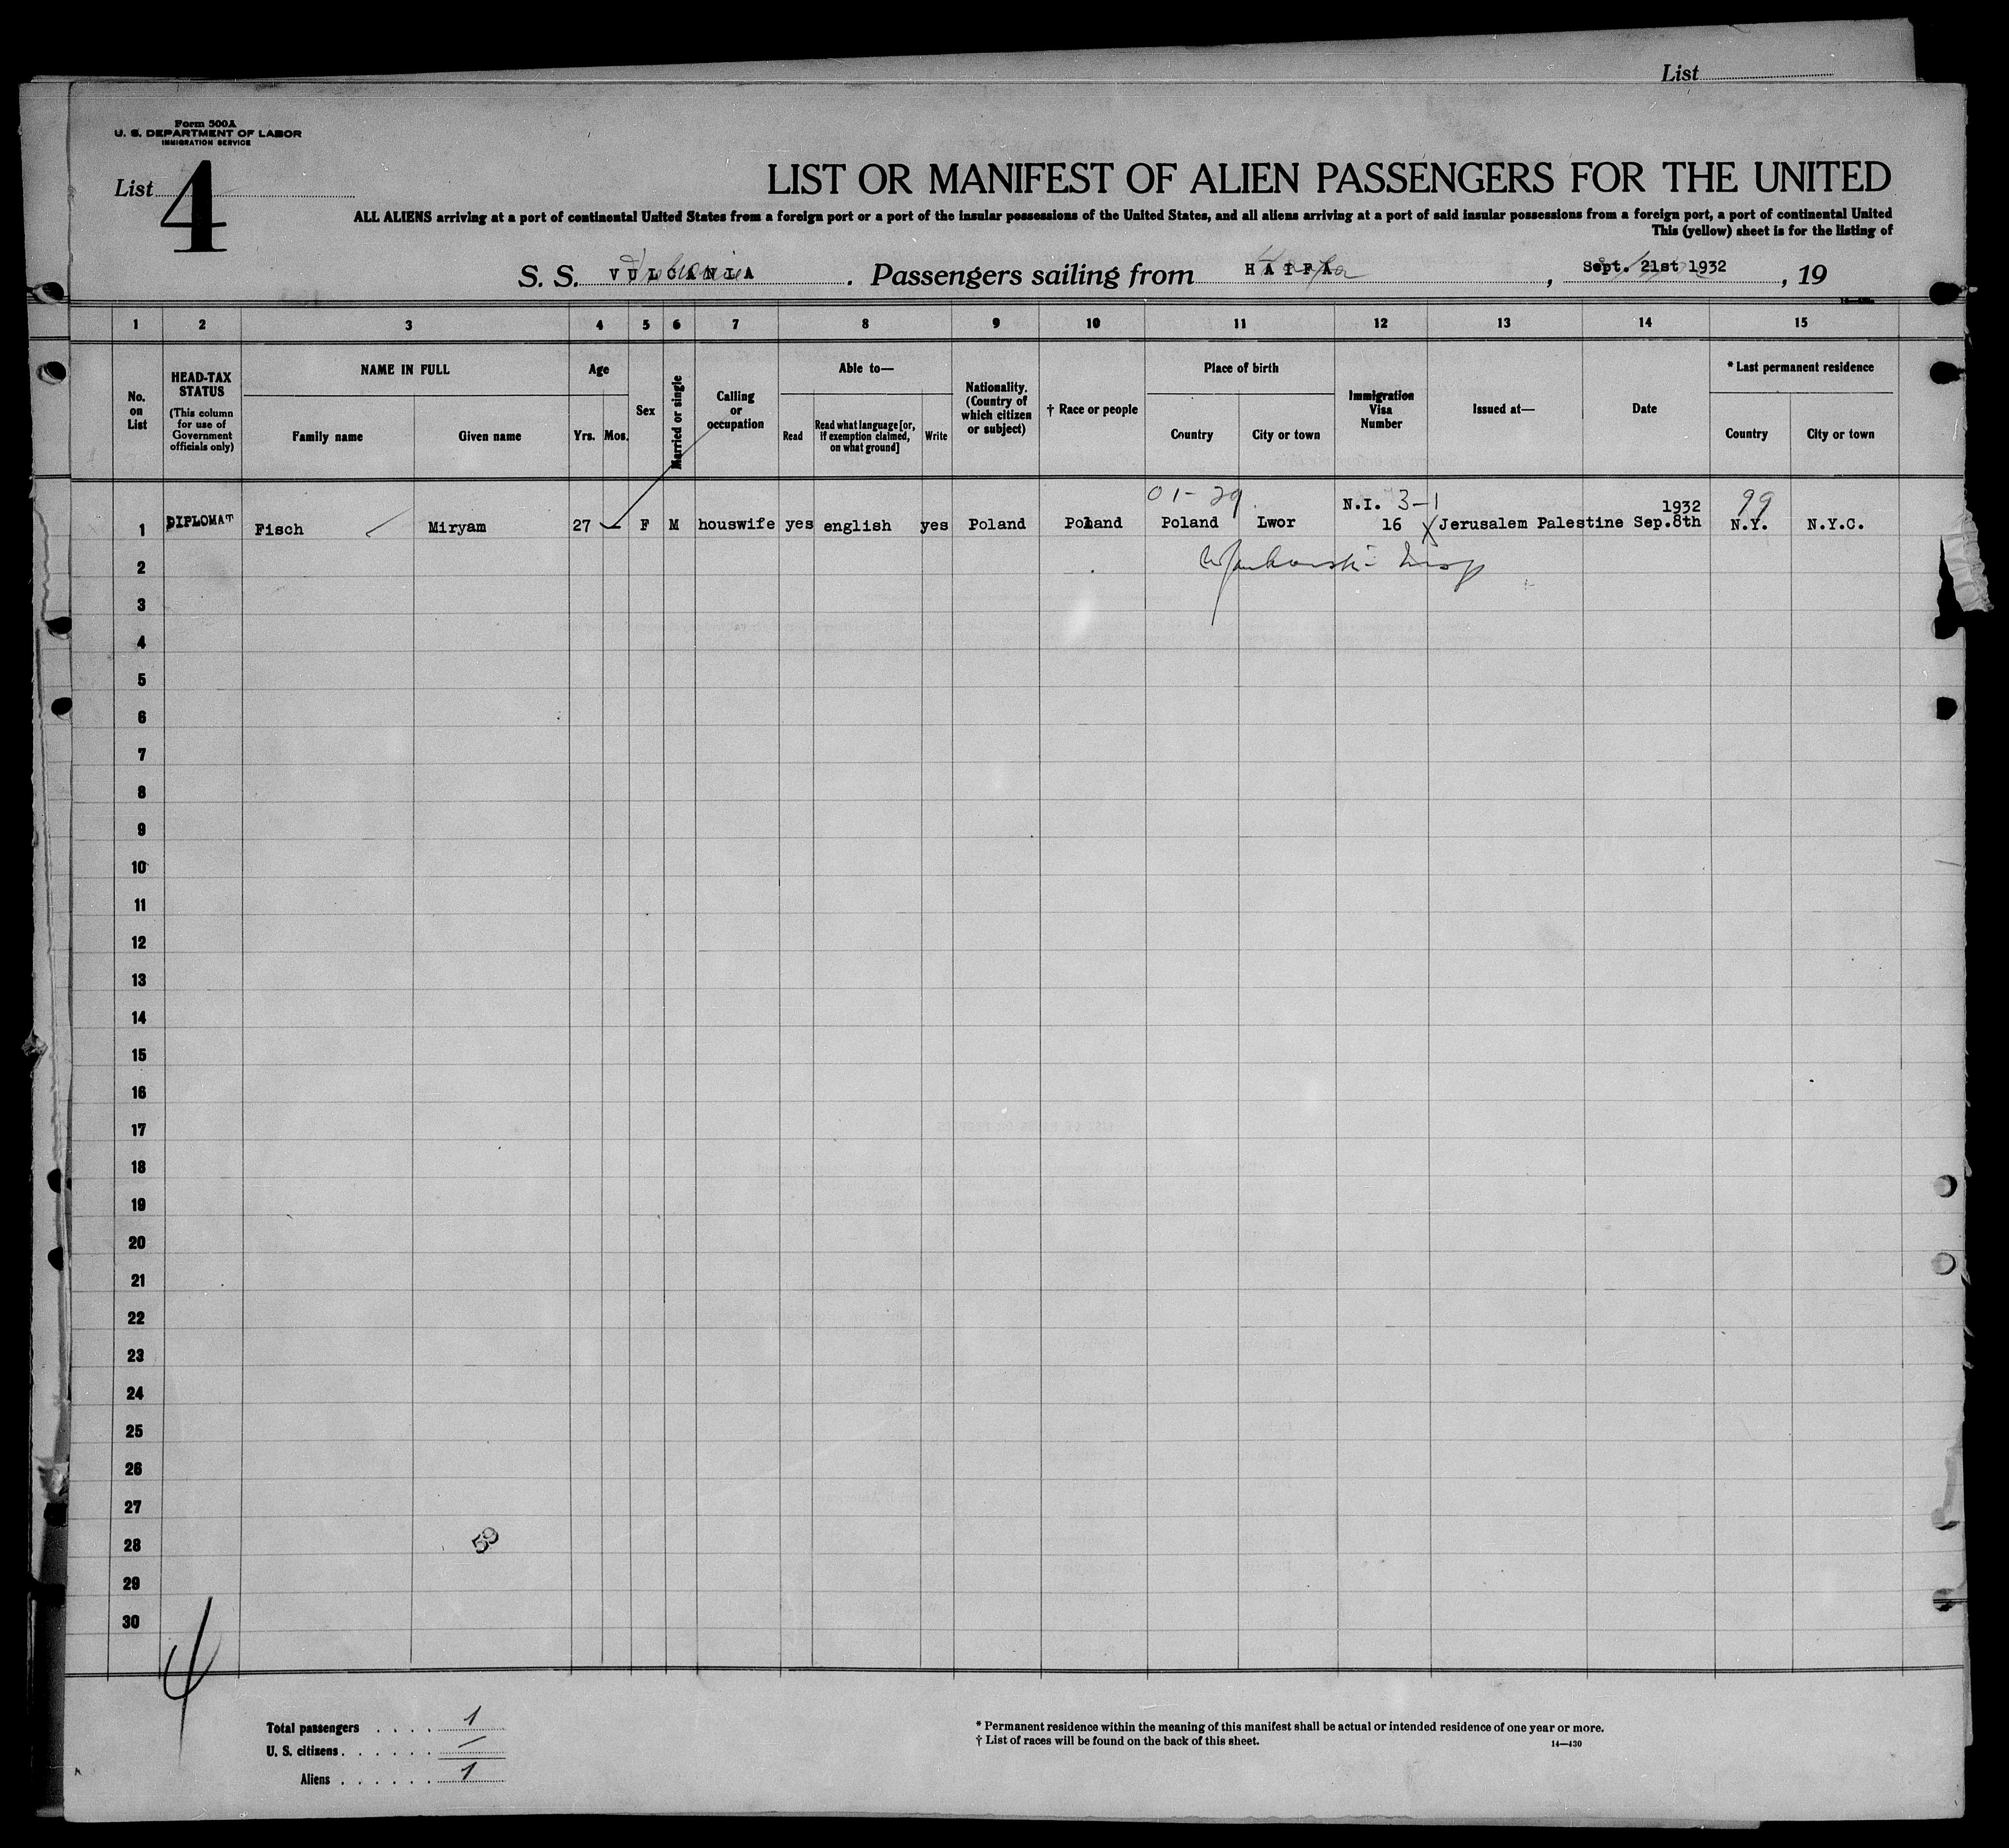 List
Form 500A
U. S. DEPARTMENT OF LABOR
IMMIGRATION SERVICE
List 4
LIST OR MANIFEST OF ALIEN PASSENGERS FOR THE UNITED
ALL ALIENS arriving at a port of continental United States from a foreign port or a port of the insular possessions of the United States, and all aliens arriving at a port of said insular possessions from a foreign port, a port of continental United
This (yellow) sheet is for the listing of
S. S. VULCANIA . Passengers sailing from HAIFA , Sept. 21st 1932 , 19
1 2 3 4 5 6 7 8 9 10 11 12 13 14 15
No. on List
HEAD-TAX STATUS
(This column for use of Government officials only)
NAME IN FULL
Family name Given name
Age
Yrs. Mos.
Sex
Married or single
Calling or occupation
Able to—
Read
Read what language [or, if exemption claimed, on what ground]
Write
Nationality. (Country of which citizen or subject)
† Race or people
Place of birth
Country City or town
Immigration Visa Number
Issued at—
Date
* Last permanent residence
Country City or town
01-29 N.I. 3-1 1932 99
1 DIPLOMAT Fisch Miryam 27 — F M houswife yes english yes Poland Poland Poland Lwor 16 X Jerusalem Palestine Sep.8th N.Y. N.Y.C.
2
3
4
5
6
7
8
9
10
11
12
13
14
15
16
17
18
19
20
21
22
23
24
25
26
27
28 59
29
30
4
Total passengers . . . . 1
U. S. citizens . . . . . . —
Aliens . . . . . . 1
* Permanent residence within the meaning of this manifest shall be actual or intended residence of one year or more.
† List of races will be found on the back of this sheet.
14—430